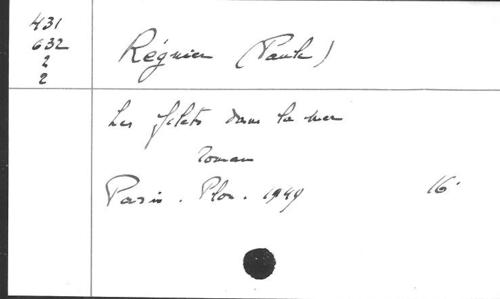 431
632
2
2
Régnier (Paule)
Les filets dans la mer
roman
Paris. Plon. 1949 16°